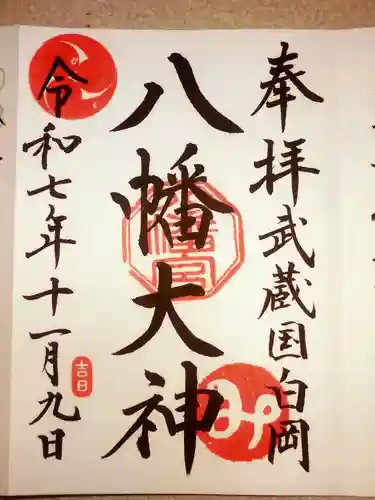 奉拝 武蔵国白岡
八幡大神
令和七年十一月九日
吉日